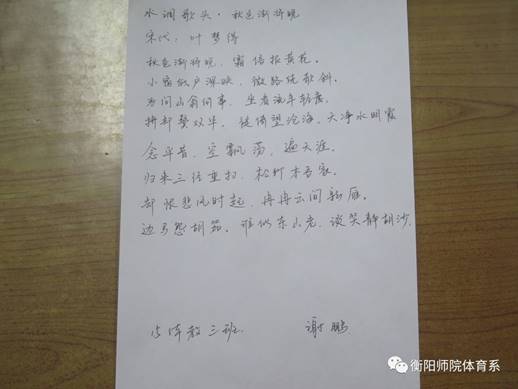 水调歌头·秋色渐将晚
宋代：叶梦得
秋色渐将晚，霜信报黄花。
小窗低户深映，微路绕欹斜。
为问山翁何事，坐看流年轻度，
拚却鬓双华。徙倚望沧海，天净水明霞
念平昔，空飘荡，遍天涯。
归来三径重扫，松竹本吾家。
却恨悲风时起，冉冉云间新雁。
边马怨胡笳。谁似东山老，谈笑静胡沙
15体教三班 谢鹏
衡阳师院体育系